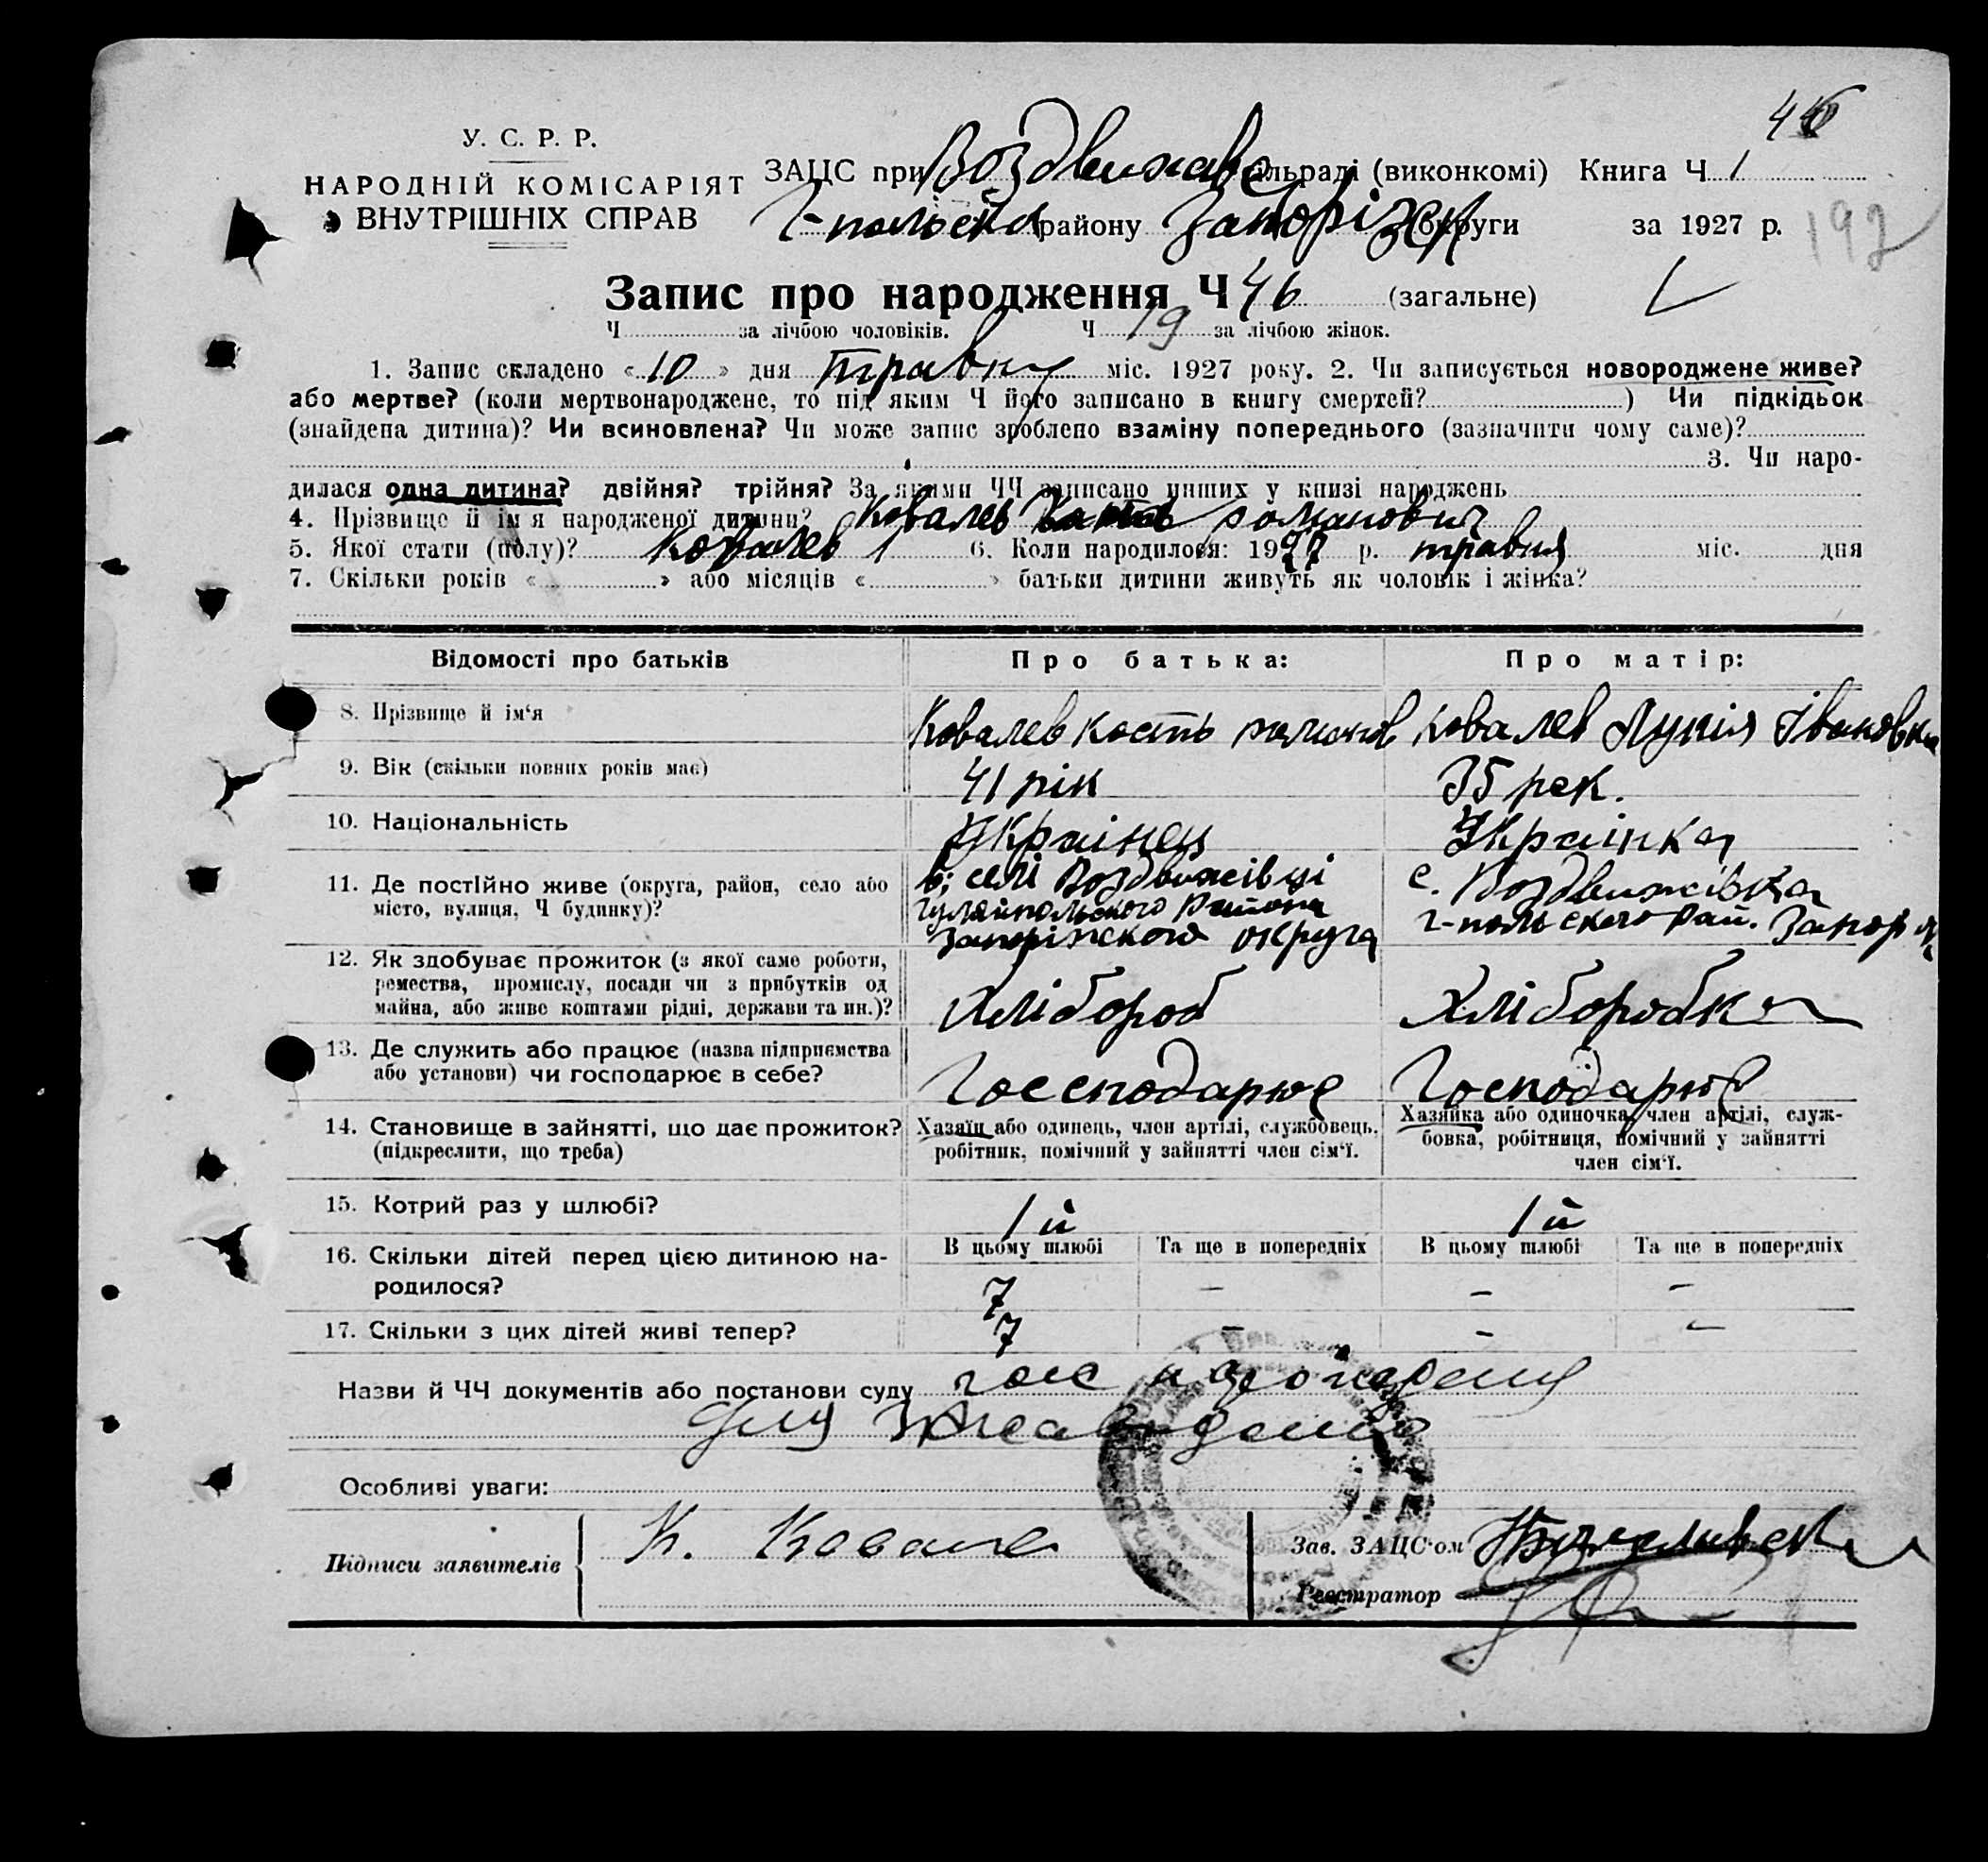 46
У. С. Р. Р.
НАРОДНІЙ КОМІСАРІЯТ
ВНУТРІШНІХ СПРАВ
ЗАЦС при Воздвижевс сільраді (виконкомі) Книга Ч. 1
Г-польськ району Запорізьк округи за 1927 р.
192
Запис про народження Ч 46 (загальне)
Ч за лічбою чоловіків. Ч 19 за лічбою жінок.
1. Запис складено «10» дня травня міс. 1927 року. 2. Чи записується новороджене живе?
або мертве? (коли мертвонароджене, то під яким Ч його записано в книгу смертей?) Чи підкідьок
(знайдена дитина)? Чи всиновлена? Чи може запис зроблено взаміну попереднього (зазначити чому саме)?
3. Чи наро-
дилася одна дитина? двійня? трійня? За якими ЧЧ записано инших у книзі народжень
4. Прізвище й ім'я народженої дитини? Ковалев романович
5. Якої стати (полу)? Ковалев 6. Коли народилося: 1927 р. травня міс. дня
7. Скільки років « » або місяців « » батьки дитини живуть як чоловік і жінка?
Відомості про батьків Про батька: Про матір:
8. Прізвище й ім'я Ковалев Кость роман Ковалев Лукія Івановна
9. Вік (скільки повних років має) 41 рік 35 рок.
10. Національність Українець Українка
11. Де постійно живе (округа, район, село або
місто, вулиця, Ч будинку)?
в; селі Воздвижівці
Гуляйпольского Района
Запоріжского округа
с. Воздвижівка
г-польского рай. Запор
12. Як здобуває прожиток (з якої саме роботи,
ремества, промислу, посади чи з прибутків од
майна, або живе коштами рідні, держави та ин.)?
Хлібороб Хлібородка
13. Де служить або працює (назва підприємства
або установи) чи господарює в себе?
Госсподарює Господарює
14. Становище в зайнятті, що дає прожиток?
(підкреслити, що треба)
Хазяїн або одинець, член артілі, службовець,
робітник, помічний у зайнятті член сім'ї.
Хазяйка або одиночка, член артілі, служ-
бовка, робітниця, помічний у зайнятті
член сім'ї.
15. Котрий раз у шлюбі? 1й 1й
16. Скільки дітей перед цією дитиною на-
родилося?
В цьому шлюбі Та ще в попередніх В цьому шлюбі Та ще в попередніх
7 – – –
17. Скільки з цих дітей живі тепер? 7 – – –
Назви й ЧЧ документів або постанови суду
Особливі уваги:
Підписи заявителів К. Ковале
Зав. ЗАЦС'ом
Реєстратор